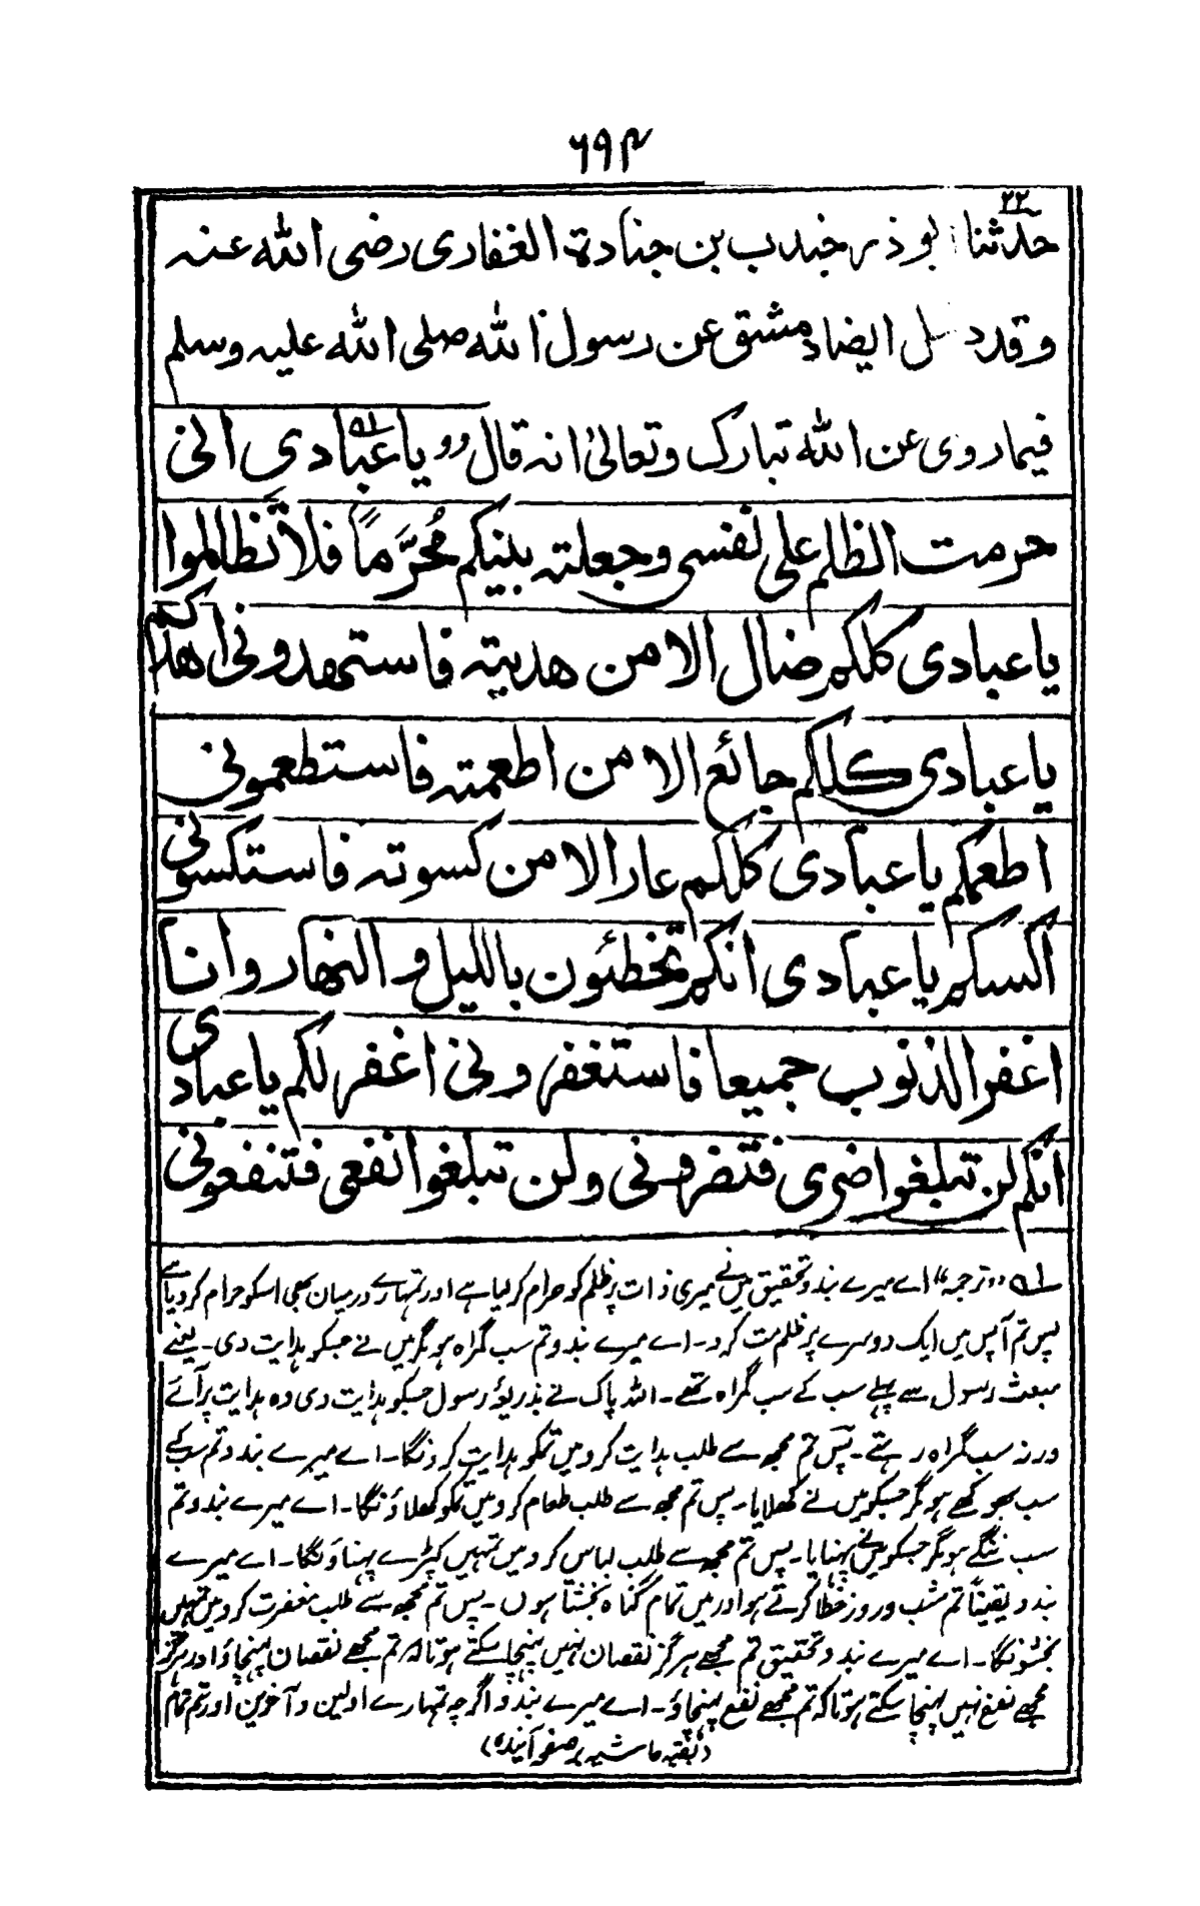 ۶۹۴
۲۲
حدثنا ابوذر جندب بن جنادة الغفاری رضی الله عنه
وقد دخل ایضا دمشق عن رسول الله صلی الله علیه وسلم
فیما روی عن الله تبارک وتعالیٰ انه قال وو یا عبادی انی
حرمت الظلم علی نفسی وجعلته بینکم مُحَرَّماً فلا تَظالموا
یا عبادی کلکم ضال الا من هدیته فاستهدونی اهدکم
یا عبادی کلکم جائع الا من اطعمته فاستطعمونی
اطعمکم یا عبادی کلکم عار الا من کسوته فاستکسونی
اکسکم یا عبادی انکم تخطئون باللیل والنهار وانا
اغفر الذنوب جمیعا فاستغفرونی اغفر لکم یا عبادی
انکم لن تبلغوا ضری فتضرونی ولن تبلغوا نفعی فتنفعونی
۵۱ وو ترجمہ،، اے میرے بندو تحقیق میں نے میری ذات پر ظلم کو حرام کر لیا ہے اور تمہارے درمیان بھی اسکو حرام کردیا ہے
پس تم آپس میں ایک دوسرے پر ظلم مت کرو۔ اے میرے بندو تم سب گمراہ ہو مگر میں نے جسکو ہدایت دی۔ یعنے
مبعث رسول سے پہلے سب کے سب گمراہ تھے۔ اللہ پاک نے بذریعۂ رسول جسکو ہدایت دی وہ ہدایت پر آئے
ورنہ سب گمراہ رہتے۔ پس تم مجھ سے طلب ہدایت کرو میں تمکو ہدایت کرونگا۔ اے میرے بندو تم سب کے
سب بھوکھے ہو مگر جسکو میں نے کھلایا۔ پس تم مجھ سے طلب طعام کرو میں تمکو کھلاؤنگا۔ اے میرے بندو تم
سب ننگے ہو مگر جسکو میں نے پہنایا۔ پس تم مجھ سے طلب لباس کرو میں تمہیں کپڑے پہناؤنگا۔ اے میرے
بندو یقیناً تم شب وروز خطا کرتے ہو اور میں تمام گناہ بخشتا ہوں۔ پس تم مجھ سے طلب مغفرت کرو میں تمہیں
بخشونگا۔ اے میرے بندو تحقیق تم مجھے ہرگز نقصان نہیں پہنچا سکتے ہو تاکہ تم مجھے نقصان پہنچاؤ اور ہرگز
مجھے نفع نہیں پہنچا سکتے ہو تاکہ تم مجھے نفع پہنچاؤ۔ اے میرے بندو اگرچہ تمہارے اولین و آخرین اور تم تمام
(بقیہ حاشیہ بر صفحہ آئندہ)